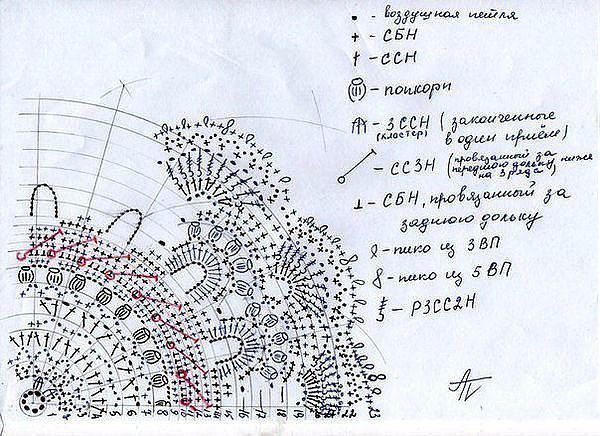 • - воздушная петля
+ - СБН
† - ССН
- попкорн
- 3ССН (законченные
(кластер) в один приём)
- СС3Н (провязанный за
переднюю дольку ниже
на 3 ряда)
⊥ - СБН, провязанный за
заднюю дольку
- пико из 3 ВП
- пико из 5 ВП
- Р3СС2Н